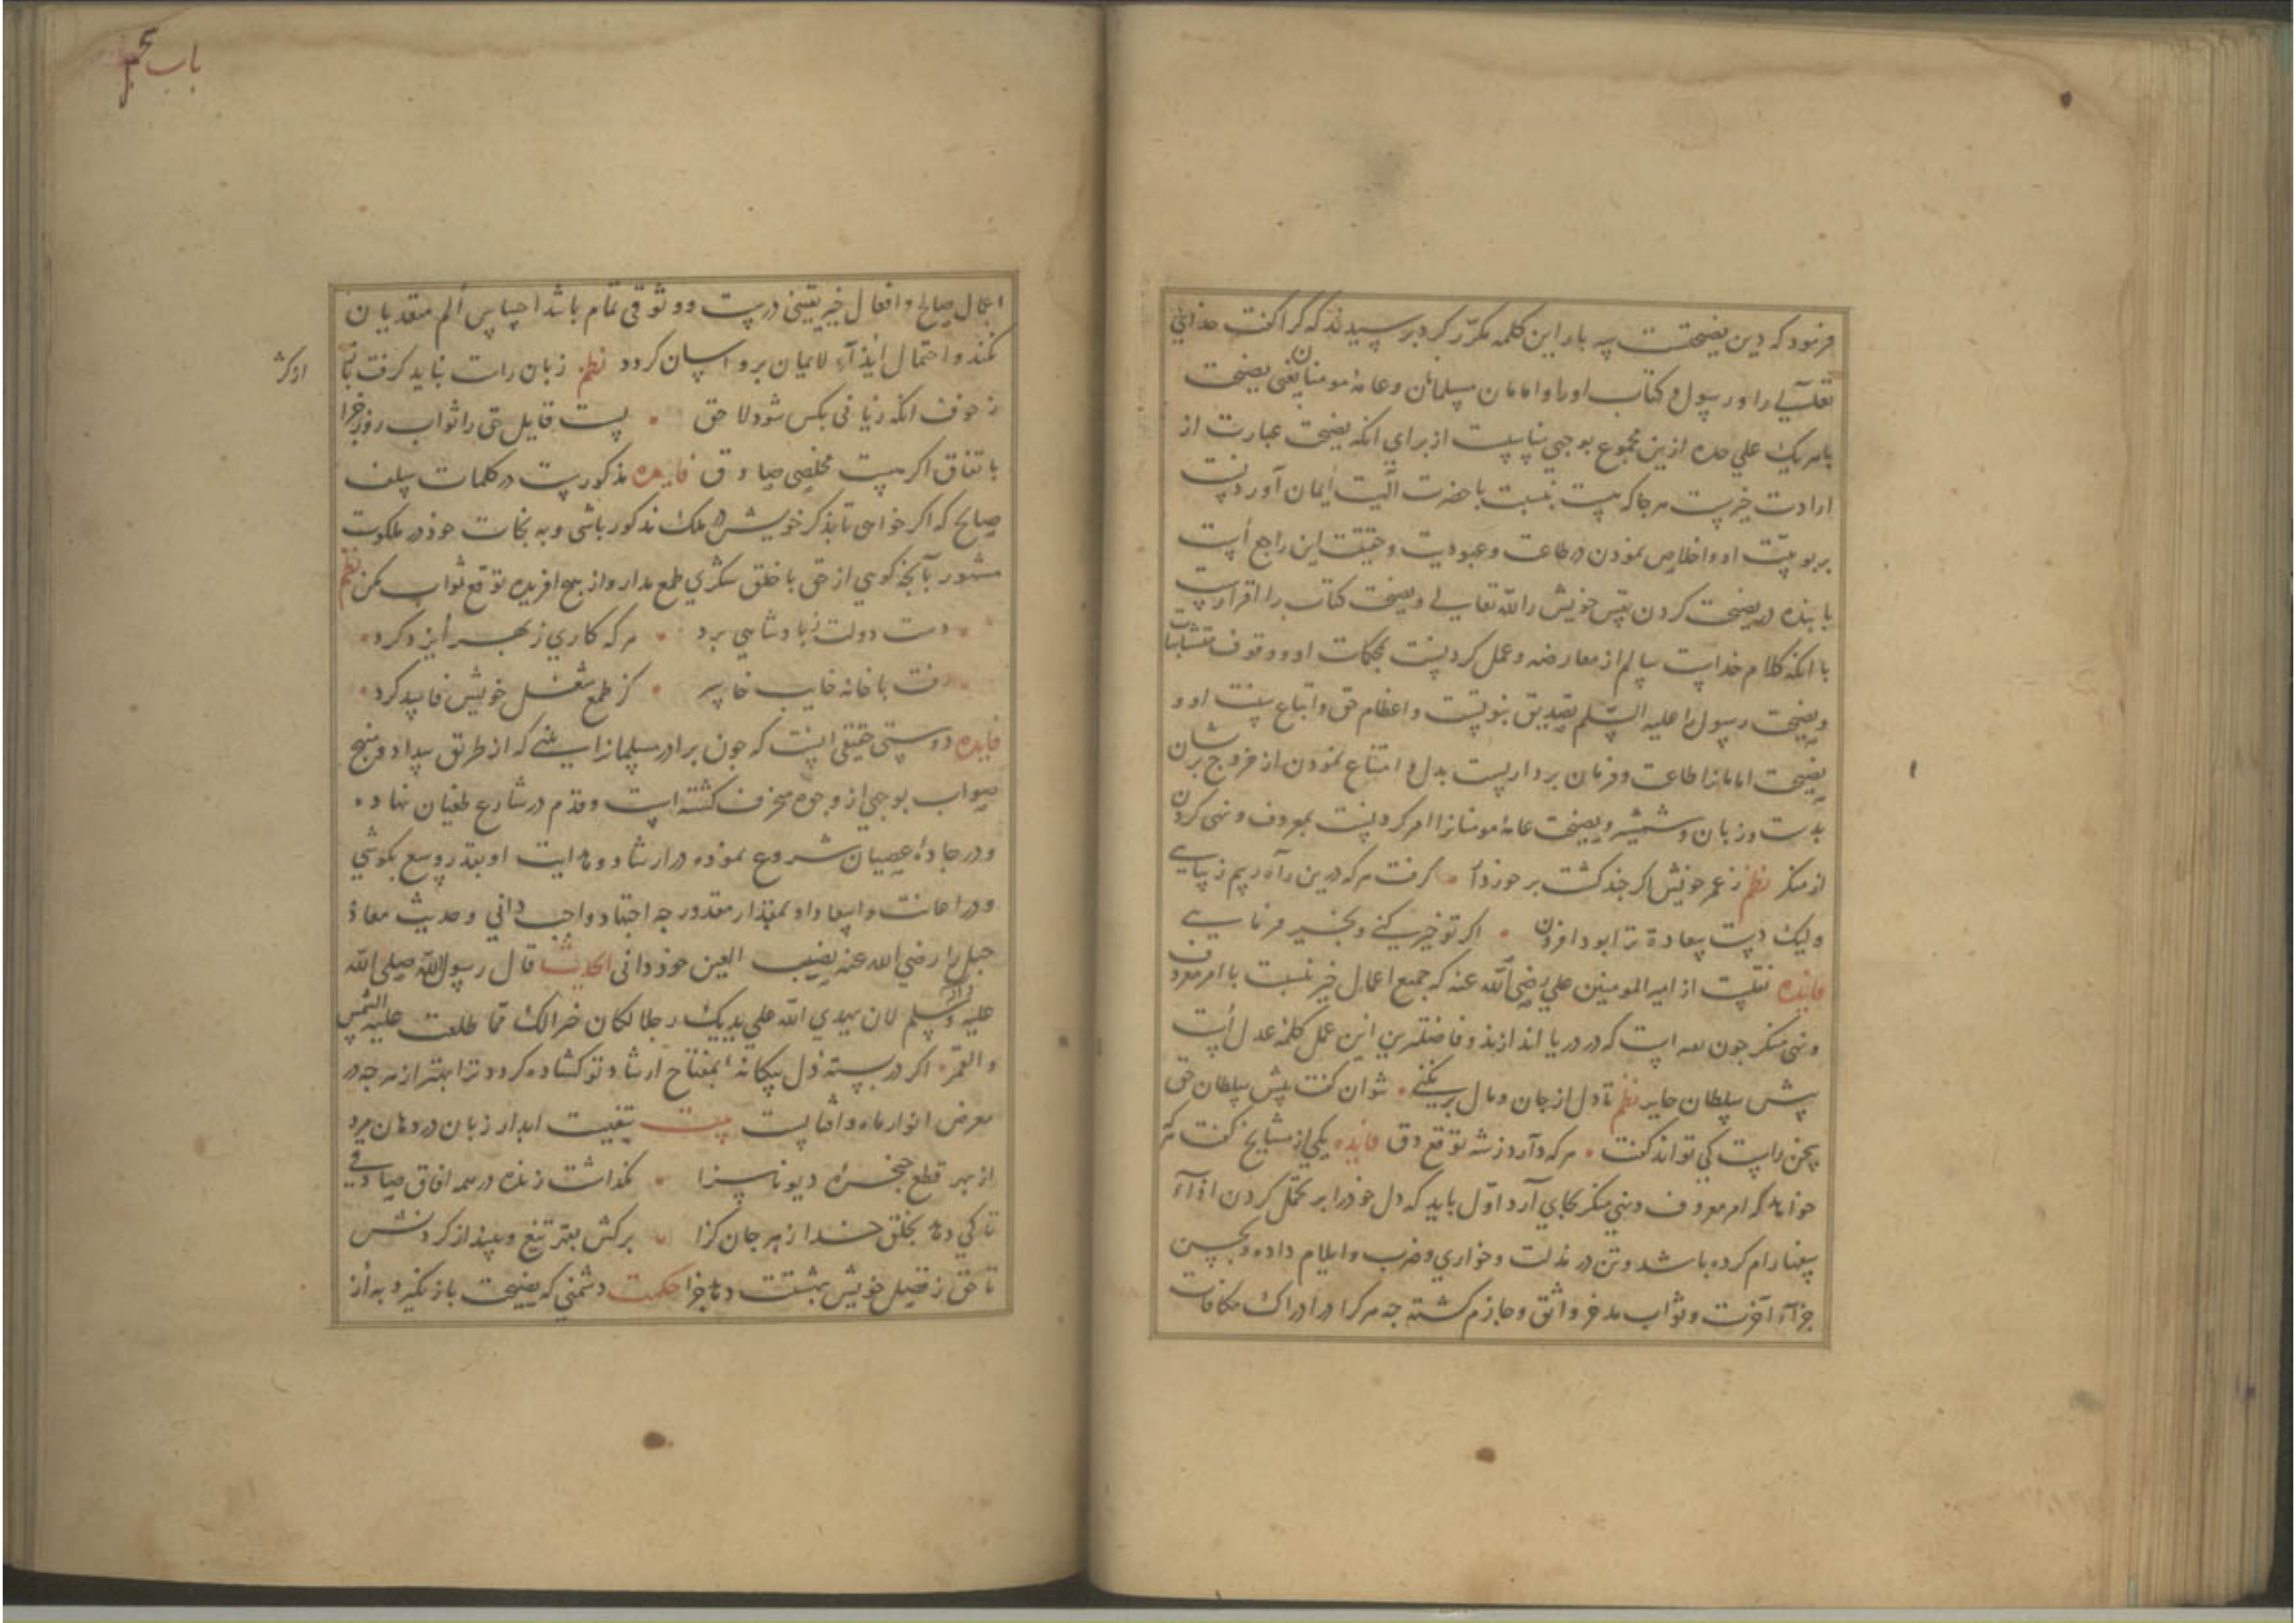 فرمود که دین نصیحتست سه بار این کلمه مکرّر کرد بر سیدند که کرا کفت خدای
تعالی را و رسول و کتاب او را و امامان مسلمانان و عامهٔ مومنان یعنی نصیحت
با هر یک علی حده ازین مجموع بوجهی مناسبست از برای انکه نصیحت عبارت از
ارادت خیرست هر جا که هست نسبت با حضرت الهیت ایمان آوردنست
بربوبیّت او و اخلاص نمودن در طاعت و عبودیت و حقیقت این راجع است
با بنده در نصیحت کردن نفس خویش را لله تعالی و نصیحت کتاب را اقرارست
با انکه کلام خداست سالم از معارضه و عمل کردنست بمحکمات او و وقوف متشابهات
و نصیحت رسول را علیه السّلم تصدیق بنوتست و اعظام حق و اتباع سنت او و
نصیحت امامانرا طاعت و فرمان برداریست بدل و امتناع نمودن از خروج بریشان
بدست و زبان و شمشیر و نصیحت عامهٔ مومنانرا امر کردنست بمعروف و نهی کردن
از منکر نظم ز عمر خویش اکر چند کشت برخوردار کرفت هرکه درین راه رسم زیبایی
ولیک دست سعادة ترا بود افزون اکر تو خیر کنی و بخیر فرمایی
فایده نقلست از امیر المومنین علی رضی الله عنه که جمیع اعمال خیر نسبت با امر معروف
و نهی منکر جون است که در دریا اندازند و فاضلترین این عمل کلمهٔ عدل است
پیش سلطان جایر نظم تا دل از جان و مال برنکنی نتوان کفت پیش سلطان حق
سخن راست کی تواند کفت هرکه دارد ز شه توقع دق فایده یکی از مشایخ کفت که
خواهد که امر معروف و نهی منکر بجای آرد اوّل باید که دل خود را بر تحمّل کردن اذآء
سفها رام کرده باشد و تن در مذلت و خواری و ضرب و ایلام داده و بحسن
جزآء آخرت و ثواب مدخر واثق و جازم کشته جه هر کرا در ادراک مکافات
باب پنجم
اعمال صالح و افعال خیر یقینی درست و وثوقی تمام باشد احساس الم متعدیان
نکند و احتمال ایذآء لایمان برو اسان کردد نظم زبان راست نباید کرفت
ز خوف انکه زیانی بکس شود لاحق بست قایل حق را ثواب روز جزا
باتفاق اکر هست مخلصی صادق فایده مذکورست در کلمات سلف
صالح که اکر خواهی تا بذکر خویش در ملک مذکور باشی و به نجات خود در ملکوت
مشهور بآنجه کویی از حق با خلق شکری طمع مدار و از هیچ افریده توقع ثواب مکن نظم
دست دولت ز پادشاهی برد هرکه کاری ز بهر ایزد کرد
رفت با خانه خایب خاسر کز طمع شغل خویش فاسد کرد
فایده دوستی حقیقی اینست که جون برادر مسلمانرا بینی که از طریق سداد و منهج
صواب بوجهی از وجوه منحرف کشته است و قدم در شارع طغیان نهاده
و در جادهٔ عصیان شروع نموده در ارشاد و هدایت او بقدر وسع بکوشی
و در اعانت و اسعاد او بمقدار مقدور جد اجتهاد واجب دانی و حدیث معاذ
جبل را رضی الله عنه نصب العین خود دانی الحدیث قال رسول الله صلی الله
علیه وآله وسلم لان یهدی الله علی یدیک رجلا لکان خیرالک ممّا طلعت علیه الشمس
والقمر اکر در بسته دل بیکانه بمفتاح ارشاد تو کشاده کردد ترا بهتر از هرجه در
معرض انوار ماه و افتابست بیت تیغیست ابدار زبان در دهان مرد
از بهر قطع حنجرهٔ دیو ناسزا نکذاشت زنده در همه افاق صادقی
تا کی دهد بخلق خدا زهر جان کزا برکش بقهر تیغ و بینداز کردنش
تا حق ز فضل خویش بهشتت دهد جزا حکمت دشمنی که نصیحت باز نکیرد به از